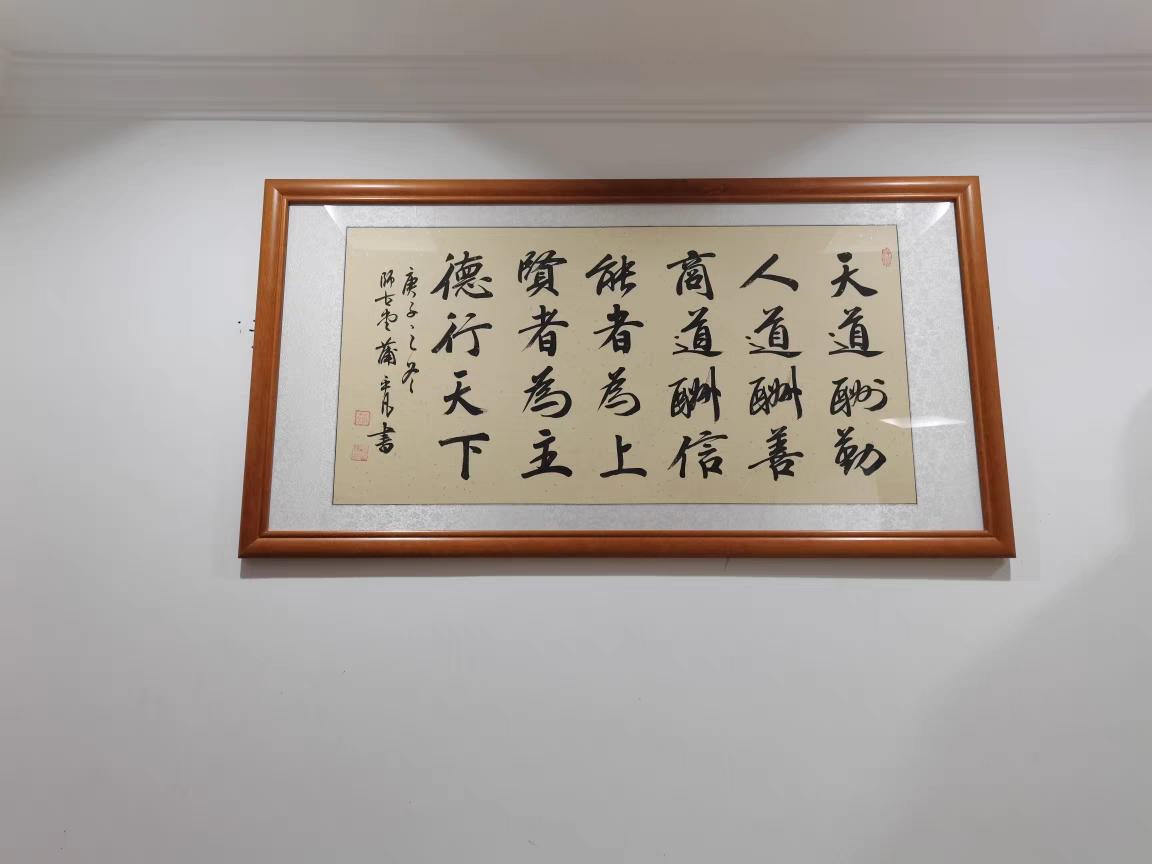 天道酬勤
人道酬善
商道酬信
能者為上
賢者為主
德行天下
庚子之冬
師古堂蒲平凡書